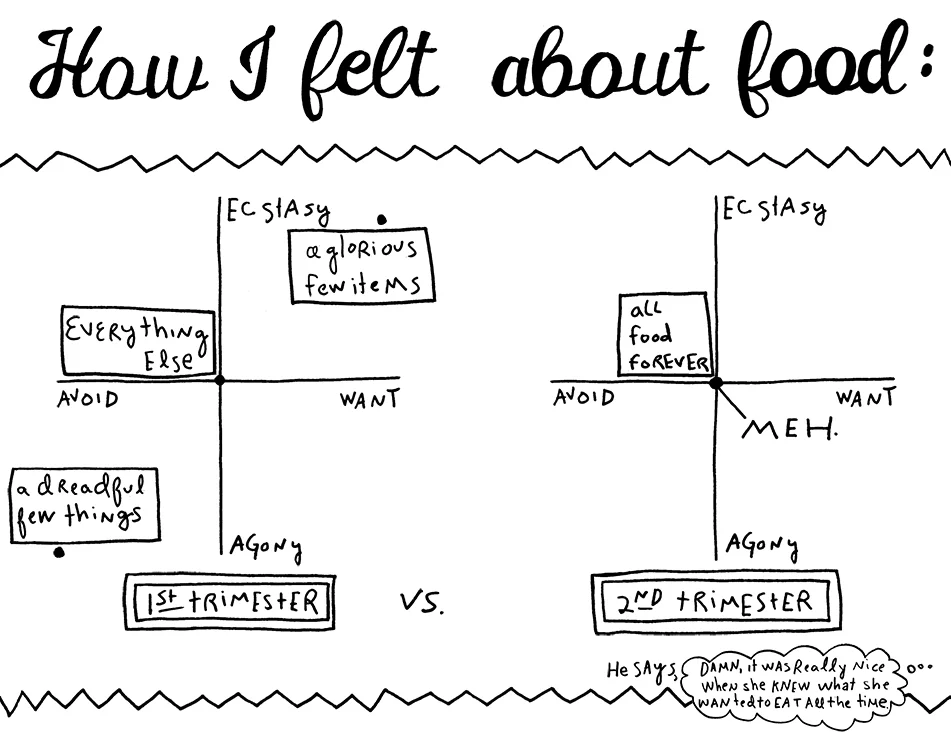 How I felt about food:
ECstAsy
a gloRious
few iteMs
EVERything
Else
AVOID
WANT
a dReadful
few things
AGONy
1st tRiMEStER
VS.
ECstAsy
aLL
food
foREVER
AVOID
WANT
MEH.
AGONy
2ND tRiMEStER
He SAys,
DAMN, it WAS Really Nice
when she KNEW what she
WANted to EAT All the tiMe.